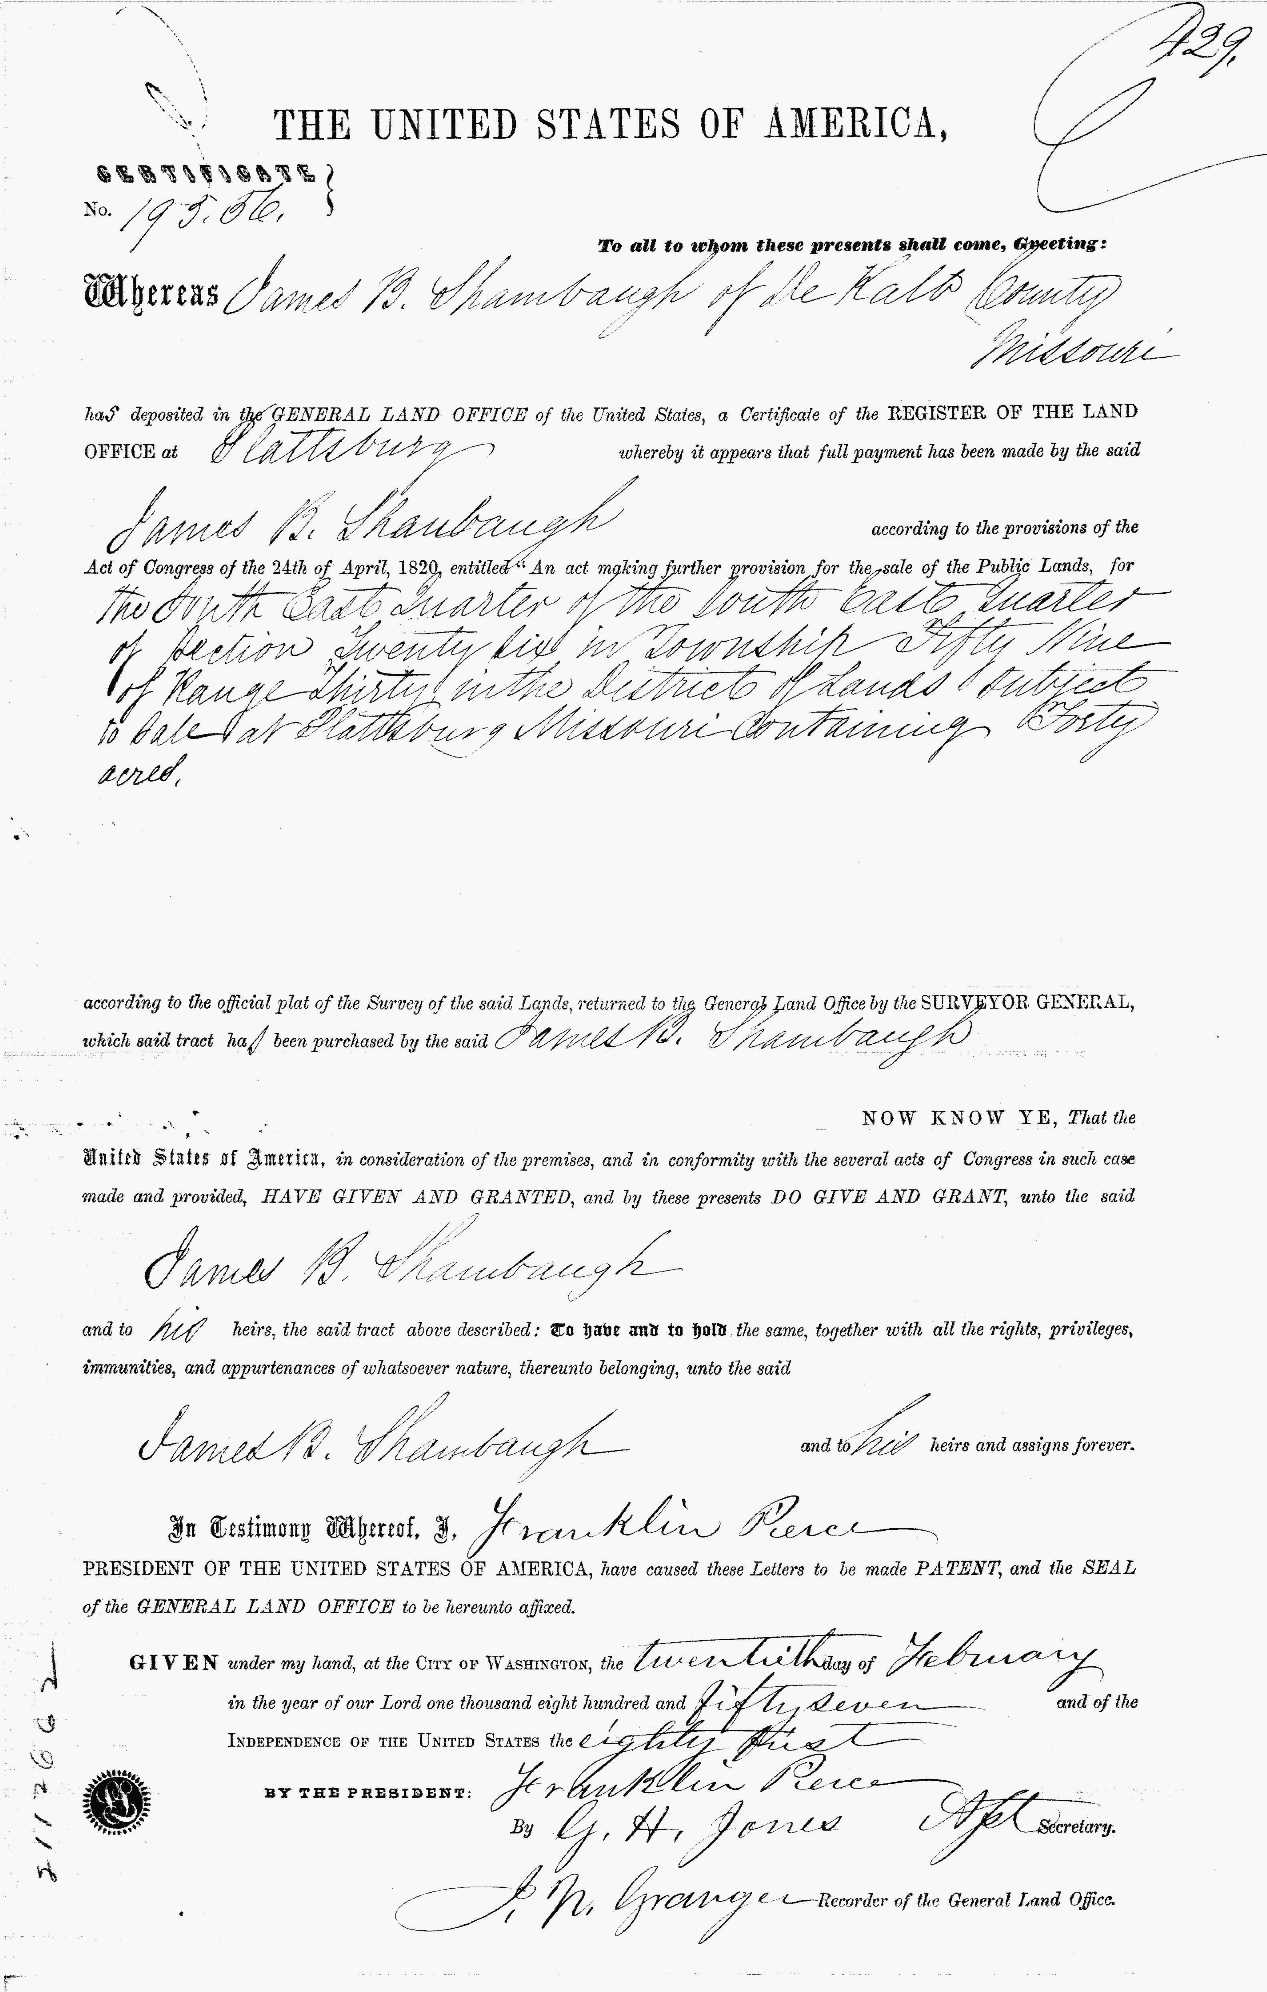 429.
THE UNITED STATES OF AMERICA,
CERTIFICATE
No. 195.56.
To all to whom these presents shall come, Greeting:
Whereas James B. Shambaugh of De Kalb County
Missouri
has deposited in the GENERAL LAND OFFICE of the United States, a Certificate of the REGISTER OF THE LAND
OFFICE at Plattsburg whereby it appears that full payment has been made by the said
James B. Shaubaugh according to the provisions of the
Act of Congress of the 24th of April, 1820, entitled "An act making further provision for the sale of the Public Lands, for
the South East Quarter of the South East Quarter
of Section Twenty Six in Township Fifty Nine
of Range Thirty in the District of Lands Subject
to Sale at Plattsburg Missouri Containing Forty
acres.
according to the official plat of the Survey of the said Lands, returned to the General Land Office by the SURVEYOR GENERAL,
which said tract has been purchased by the said James B. Shambaugh
NOW KNOW YE, That the
United States of America, in consideration of the premises, and in conformity with the several acts of Congress in such case
made and provided, HAVE GIVEN AND GRANTED, and by these presents DO GIVE AND GRANT, unto the said
James B. Shambaugh
and to his heirs, the said tract above described: To have and to hold the same, together with all the rights, privileges,
immunities, and appurtenances of whatsoever nature, thereunto belonging, unto the said
James B. Shambaugh and to his heirs and assigns forever.
In Testimony Whereof, I, Franklin Pierce
PRESIDENT OF THE UNITED STATES OF AMERICA, have caused these Letters to be made PATENT, and the SEAL
of the GENERAL LAND OFFICE to be hereunto affixed.
GIVEN under my hand, at the CITY OF WASHINGTON, the twentieth day of February
in the year of our Lord one thousand eight hundred and fifty seven and of the
INDEPENDENCE OF THE UNITED STATES the eighty first
BY THE PRESIDENT: Franklin Pierce
By G. H. Jones Asst Secretary.
J. N. Granger Recorder of the General Land Office.